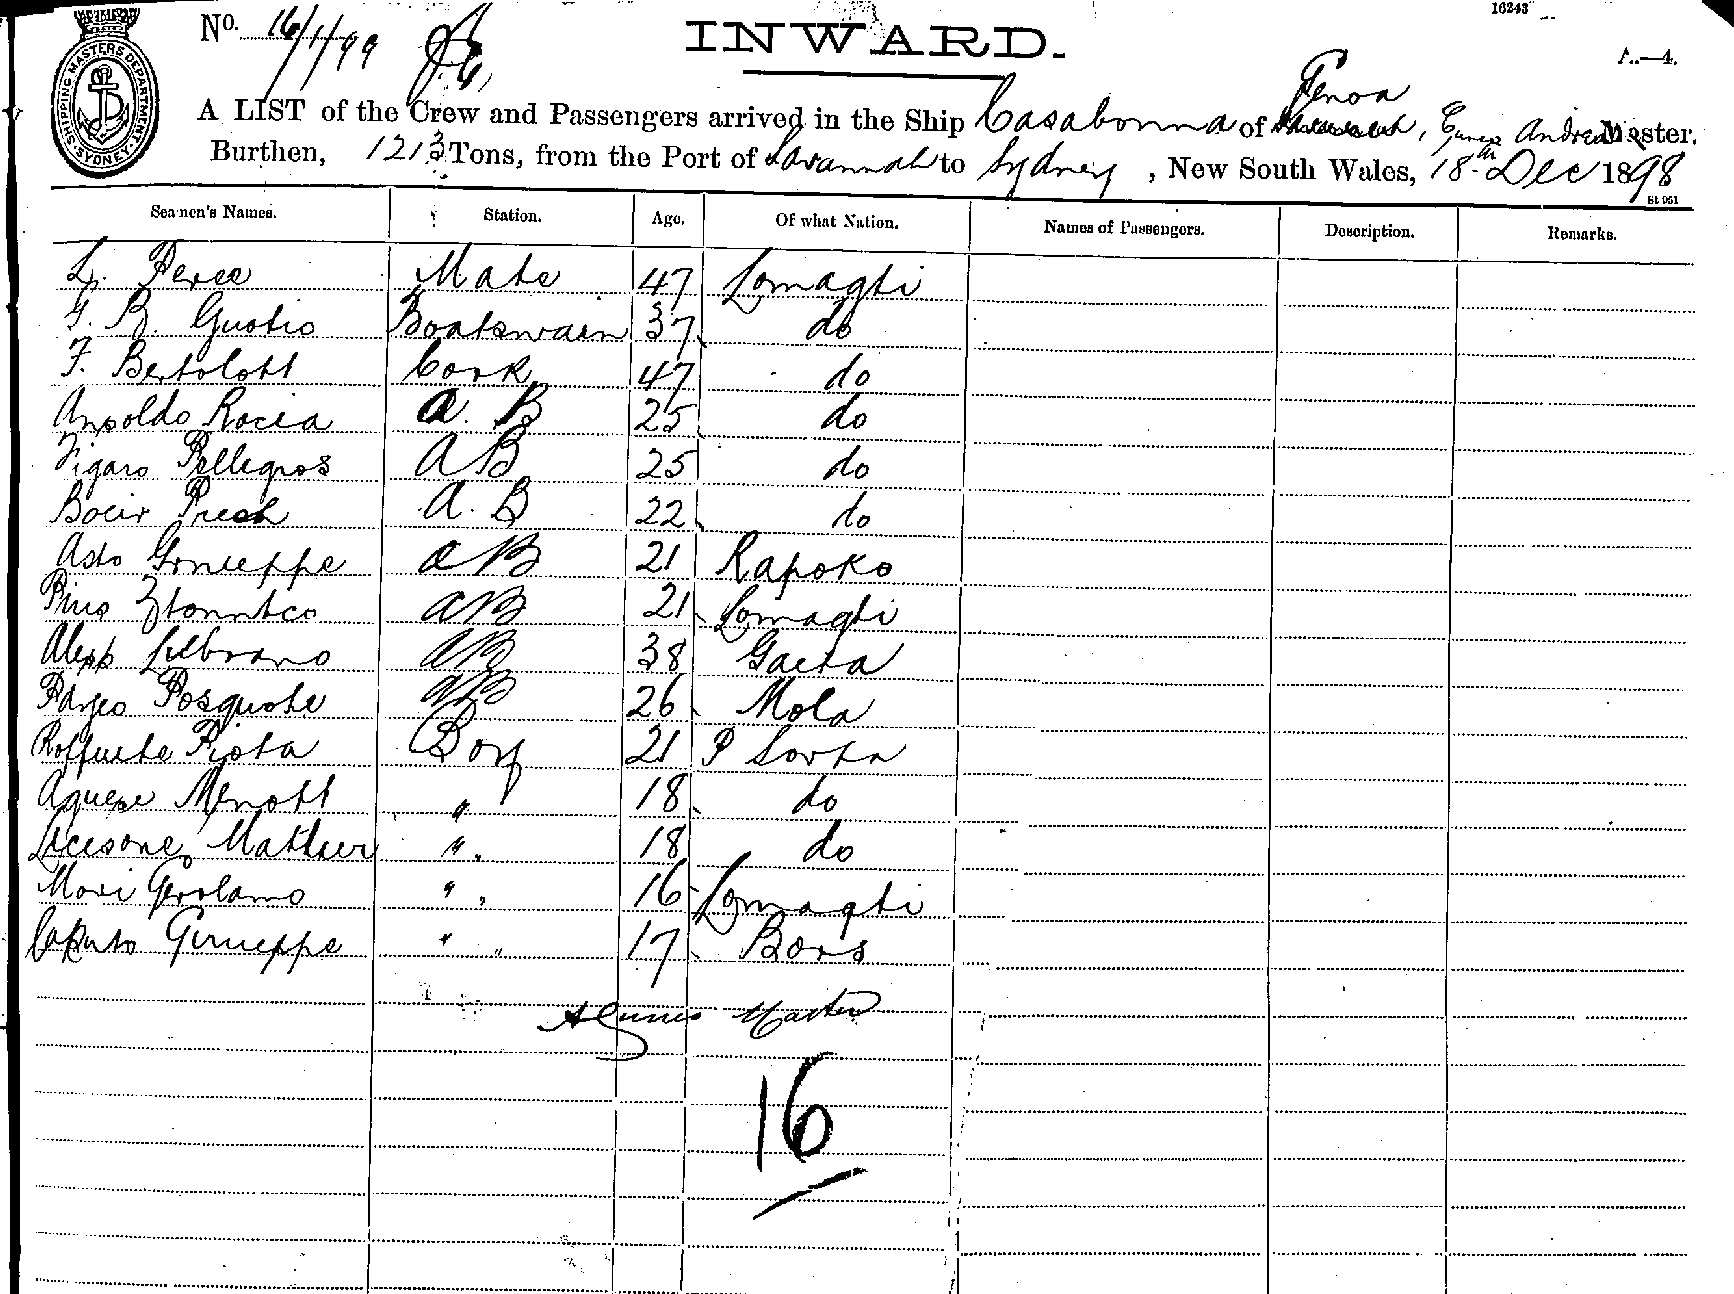 16243
No. 16/1/99
INWARD.
A.—4.
SHIPPING MASTERS DEPARTMENT SYDNEY
Genoa
A LIST of the Crew and Passengers arrived in the Ship Casabonna of , Andrea Master.
Burthen, 1213 Tons, from the Port of Savannah to Sydney, New South Wales, 18th Dec 1898
St 951
Seamen's Names. Station. Age. Of what Nation. Names of Passengers. Description. Remarks.
L. Perce Mate 47 Lomagti
G. B. Gustio Boatswain 37 do
F. Bertolott Cook 47 do
Anpoldo Rocia A. B 25 do
Figaro Pellegros AB 25 do
Bocir Presh A. B 22 do
Asto Gonieppe AB 21 Rapoko
Pino AB 21 Lomagti
Alepp Lilbrano AB 38 Gaeta
Posquote AB 26 Mola
Roffuete Fista Boy 21 P Sorta
Aguese Menott " 18 do
Licesone Mattiev " 18 do
Mori Gerolamo " 16 Lomagti
Caputo Girueppe " " 17 Bors
Master
16